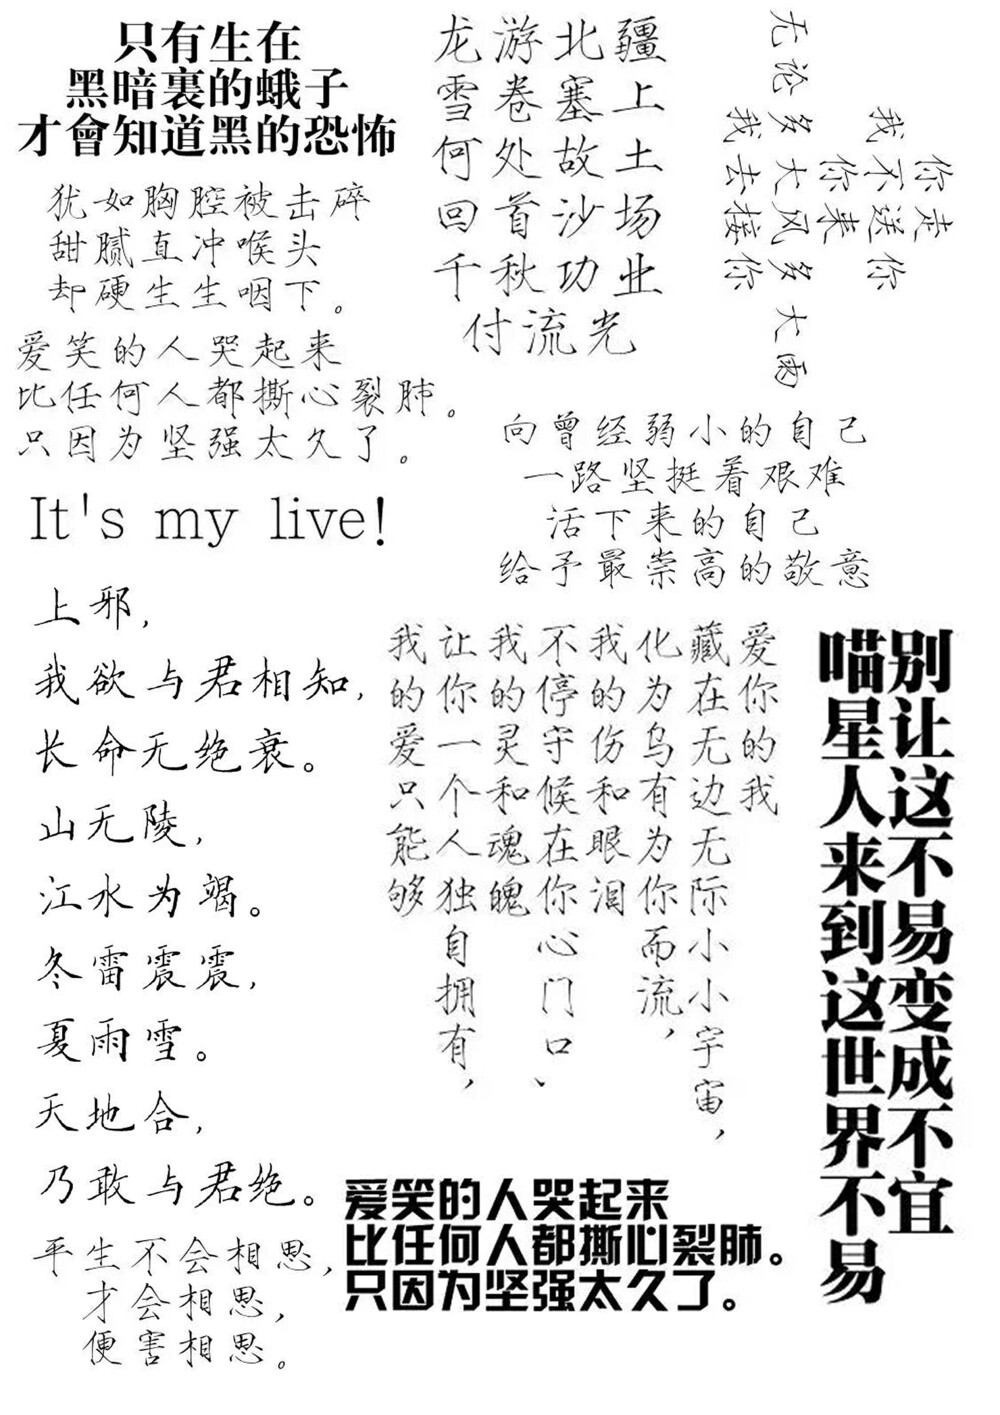 只有生在
黑暗裏的蛾子
才會知道黑的恐怖
犹如胸腔被击碎
甜腻直冲喉头
却硬生生咽下。
爱笑的人哭起来
比任何人都撕心裂肺。
只因为坚强太久了。
It's my live!
上邪,
我欲与君相知,
长命无绝衰。
山无陵,
江水为竭。
冬雷震震,
夏雨雪。
天地合,
乃敢与君绝。
平生不会相思,
才会相思,
便害相思。
龙游北疆
雪卷塞上
何处故土
回首沙场
千秋功业
付流光
你走
我不送你
你来
无论多大风多大雨
我去接你
向曾经弱小的自己
一路坚挺着艰难
活下来的自己
给予最崇高的敬意
爱你的我
藏在无边无际小小宇宙，
化为乌有为你而流，
我的伤和眼泪
不停守候在你心门口、
我的灵和魂魄
让你一个人独自拥有，
我的爱只能够
喵星人来到这世界不易
别让这不易变成不宜
爱笑的人哭起来
比任何人都撕心裂肺。
只因为坚强太久了。